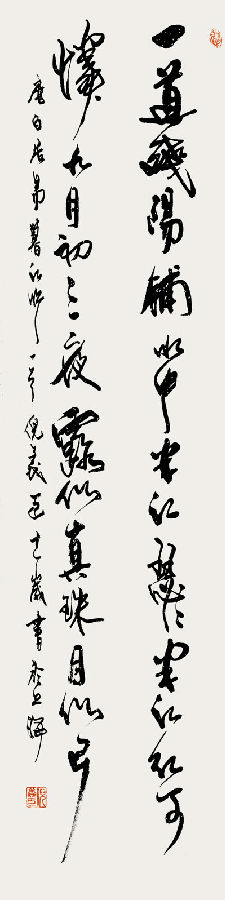 一道殘陽鋪水中半江瑟瑟半江紅可
憐九月初三夜露似真珠月似弓
唐白居易暮江吟一首倪義歲書於上海